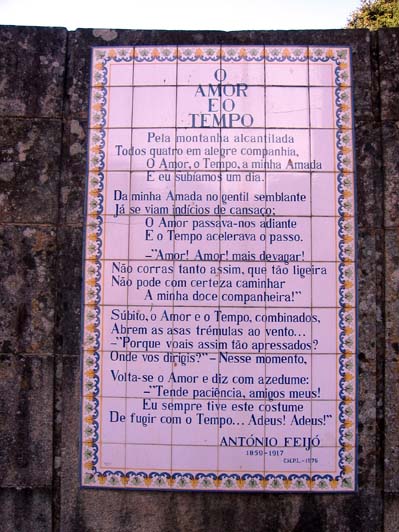 O
AMOR
E O
TEMPO
Pela montanha alcantilada
Todos quatro em alegre companhia,
O Amor, o Tempo, a minha Amada
E eu subíamos um dia.
Da minha Amada no gentil semblante
Já se viam indícios de cansaço;
O Amor passava-nos adiante
E o Tempo acelerava o passo.
–"Amor! Amor! mais devagar!
Não corras tanto assim, que tão ligeira
Não pode com certeza caminhar
A minha doce companheira!"
Súbito, o Amor e o Tempo, combinados,
Abrem as asas trémulas ao vento...
–"Porque voais assim tão apressados?
Onde vos dirigis?" – Nesse momento,
Volta-se o Amor e diz com azedume:
–"Tende paciência, amigos meus!
Eu sempre tive este costume
De fugir com o Tempo... Adeus! Adeus!"
ANTÓNIO FEIJÓ
1859-1917